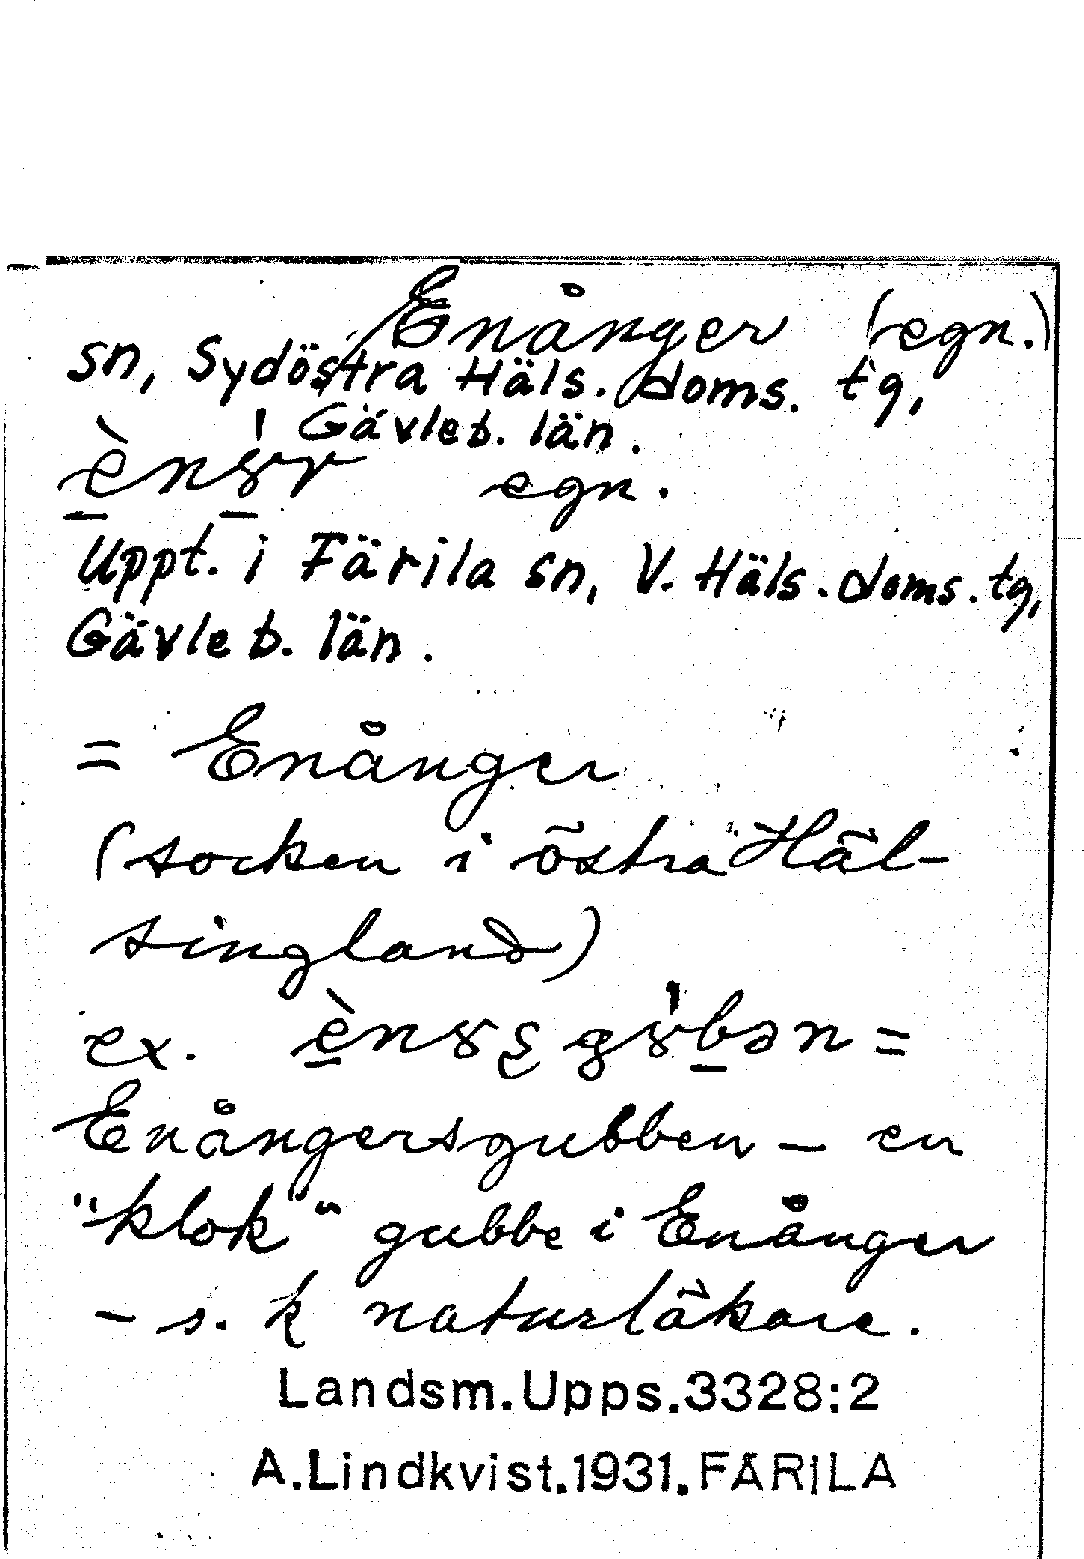 Enånger (egn.)
sn, Sydöstra Häls. doms. tg,
Gävleb. län.
egn.
Uppt. i Färila sn, V. Häls. doms. tg,
Gävleb. län.
= Enånger
(socken i östra Häl-
singland)
ex. =
Enångersgubben – en
"klok" gubbe i Enånger
– s. k naturläkare.
Landsm.Upps.3328:2
A.Lindkvist.1931.FÄRILA